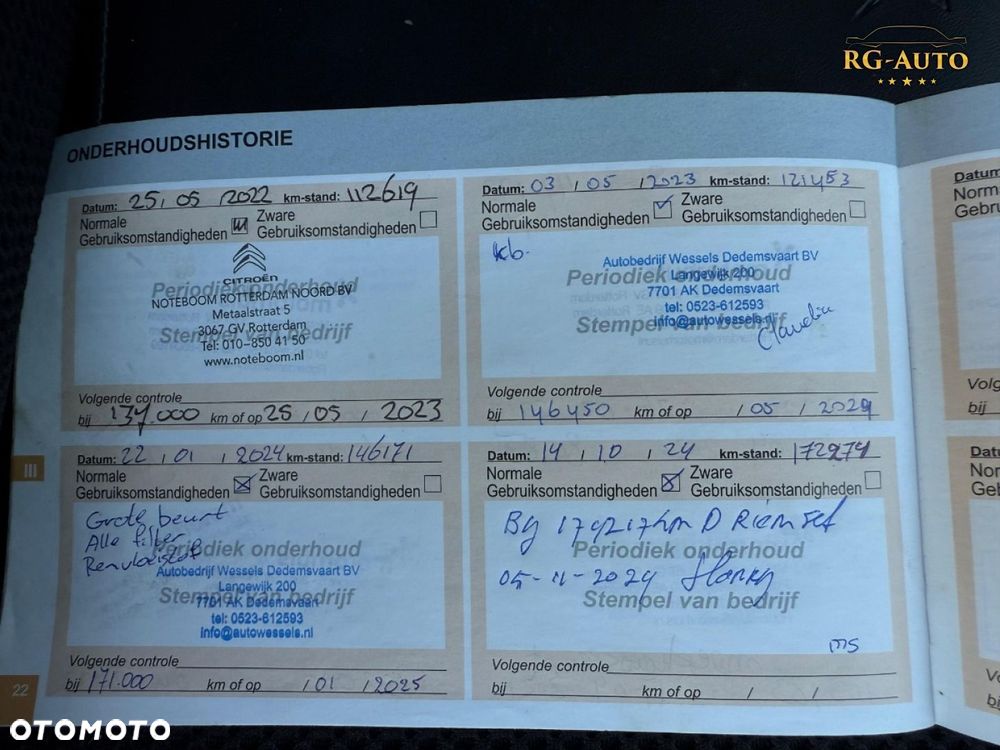 RG-AUTO
ONDERHOUDSHISTORIE
Datum: 25 / 05 / 2022 km-stand: 112619
Normale
Gebruiksomstandigheden
Zware
Gebruiksomstandigheden
CITROËN
NOTEBOOM ROTTERDAM NOORD BV
Periodiek onderhoud
Metaalstraat 5
3067 GV Rotterdam
Stempel van bedrijf
Tel: 010-850 41 50
www.noteboom.nl
Volgende controle
bij 137.000 km of op 25 / 05 / 2023
Datum: 03 / 05 / 2023 km-stand: 121453
Normale
Gebruiksomstandigheden
Zware
Gebruiksomstandigheden
kb.
Autobedrijf Wessels Dedemsvaart BV
Periodiek onderhoud
Langewijk 200
7701 AK Dedemsvaart
tel: 0523-612593
Stempel van bedrijf
info@autowessels.nl
Claudia
Volgende controle
bij 146450 km of op / 05 / 2024
Datum: 22 / 01 / 2024 km-stand: 146171
Normale
Gebruiksomstandigheden
Zware
Gebruiksomstandigheden
Grote beurt
Alle filter
Remvloeistof
Periodiek onderhoud
Autobedrijf Wessels Dedemsvaart BV
Langewijk 200
Stempel van bedrijf
7701 AK Dedemsvaart
tel: 0523-612593
info@autowessels.nl
Volgende controle
bij 171.000 km of op / 01 / 2025
Datum: 14 / 10 / 24 km-stand: 172974
Normale
Gebruiksomstandigheden
Zware
Gebruiksomstandigheden
Periodiek onderhoud
05-11-2024
Stempel van bedrijf
ms
Volgende controle
bij km of op / /
III
22
OTOMOTO